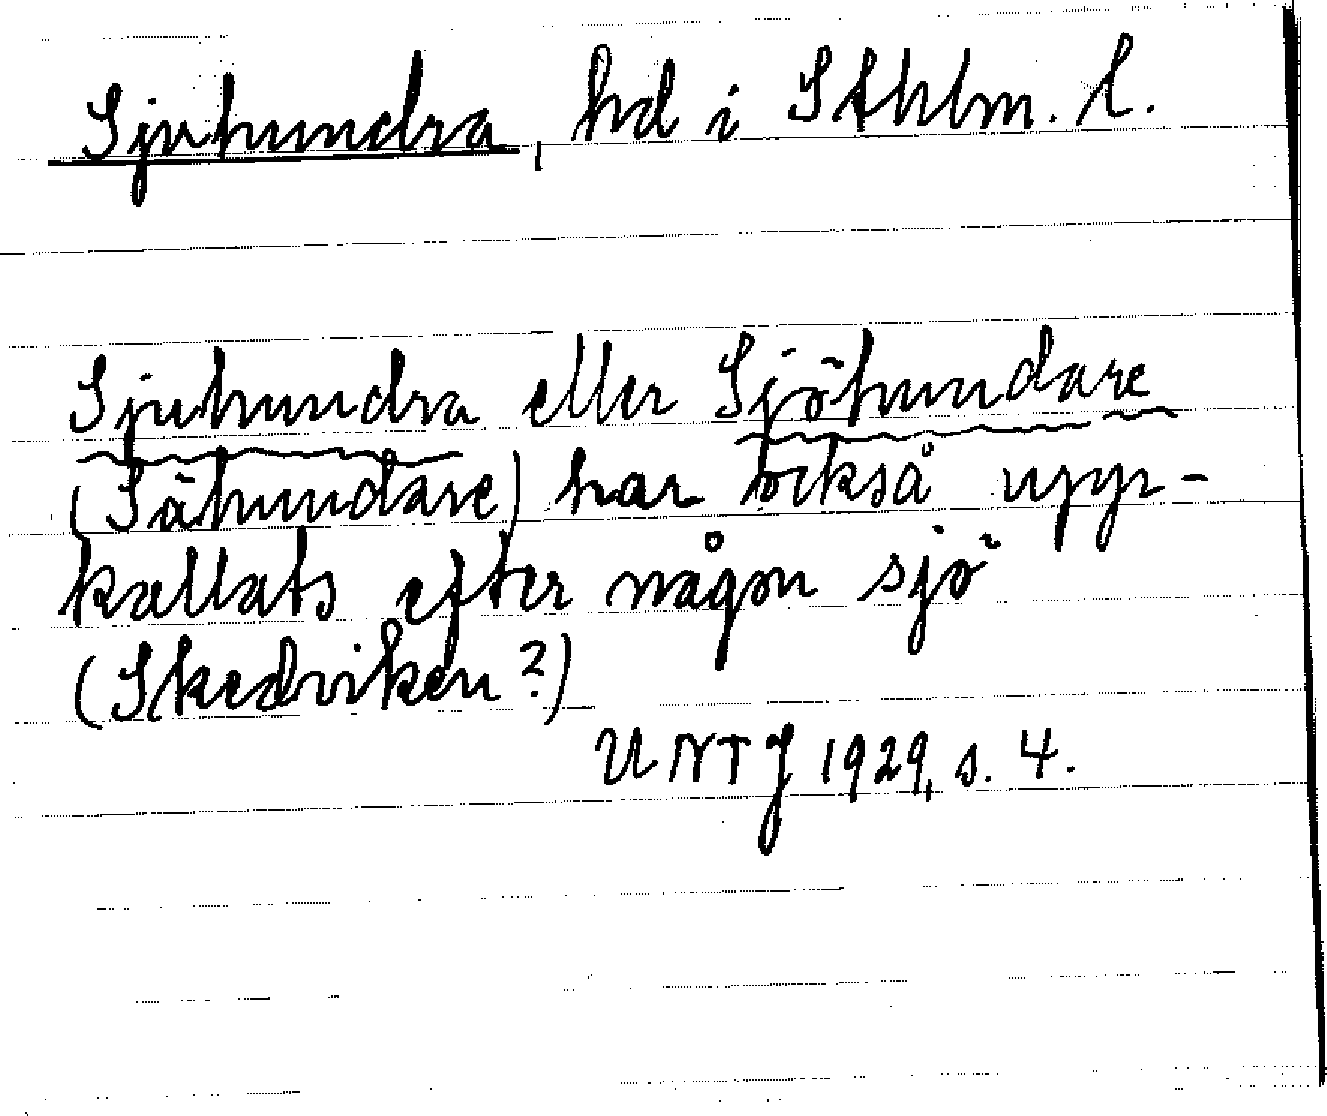 Sjuhundra, hd i Sthlm. l.
Sjuhundra eller Sjöhundare
(Sähundare) har också upp-
kallats efter någon sjö
(Skedviken?)
UNTJ 1929, s. 4.